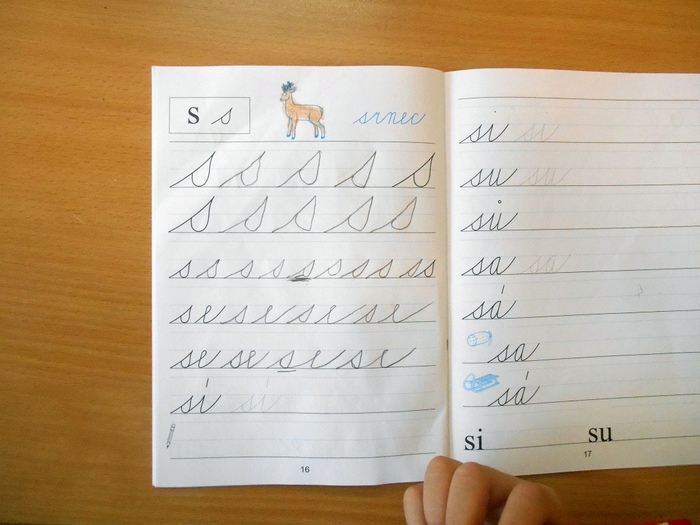 s s srnec
s s s s s
s s s s s
s s s s s s s s s s
se se se se
se se se se
sí sí
16
si si
su su
sů
sa sa
sá
sa
sá
si su
17